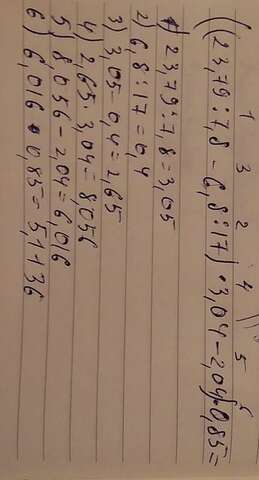 1 3 2 4 5 6
((23,79:7,8-6,8:17)·3,04-2,04)·0,85=
1) 23,79:7,8=3,05
2) 6,8:17=0,4
3) 3,05-0,4=2,65
4) 2,65·3,04=8,056
5) 8,056-2,04=6,016
6) 6,016·0,85=5,1136